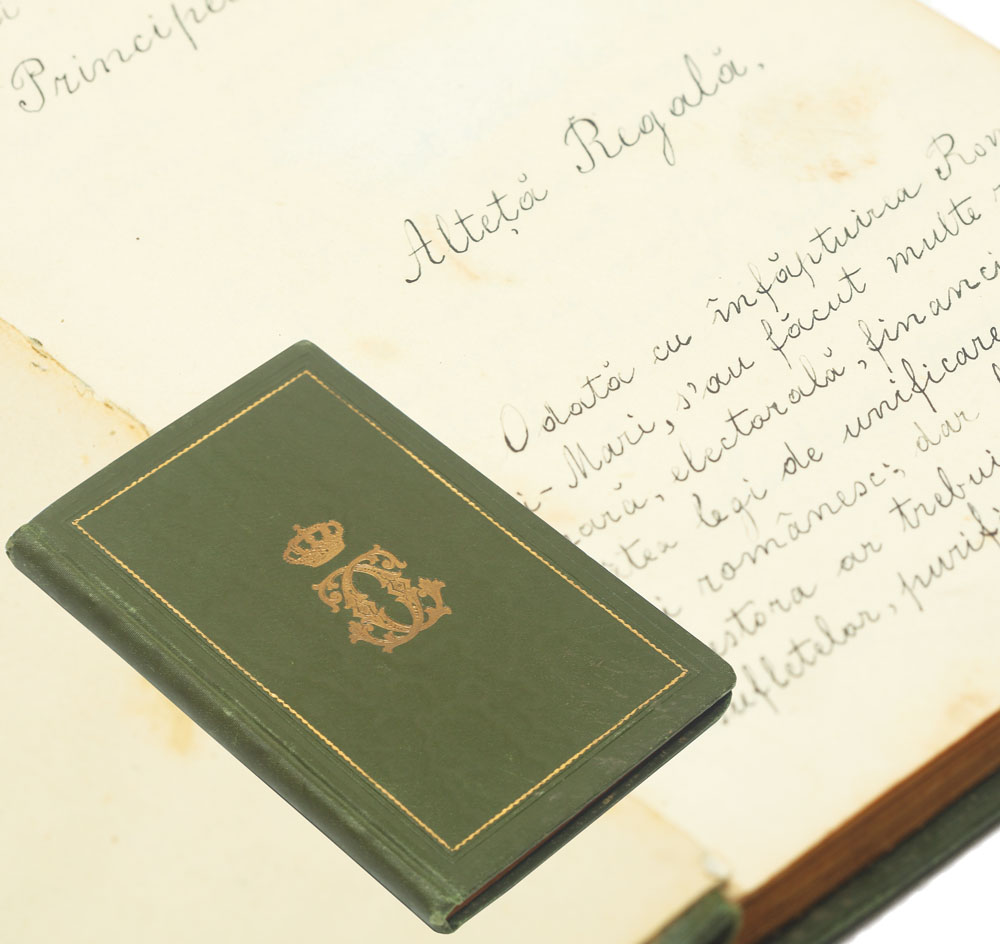 Principe
Alteță Regală.
Odată cu înfăptuirea Rom
i-Mari, s'au făcut multe
ară, electorală, financi
tea legi de unificare
i românesc; dar
estora ar trebui
ufletelor, purif